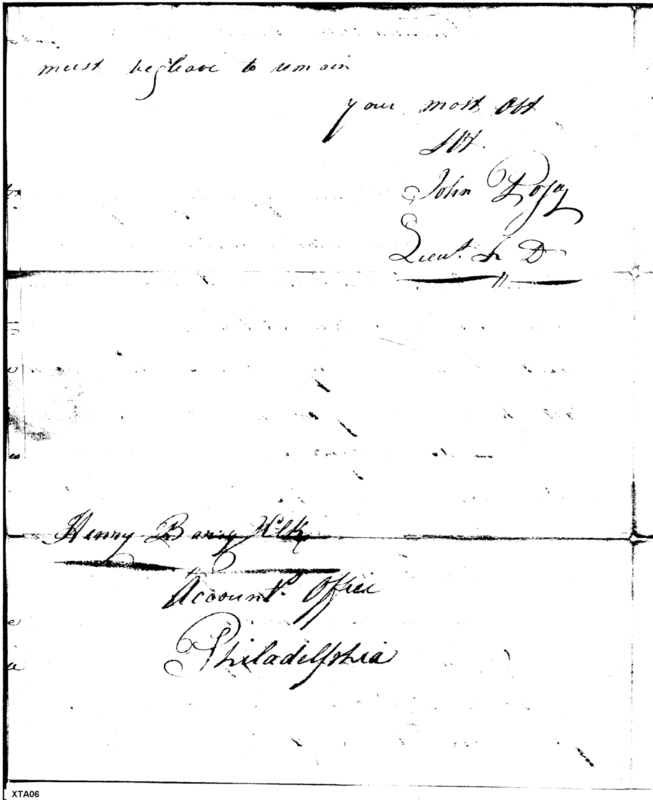 must beg leave to remain
your most Obt
Svt.
John
Lieut. L D
Henry Barry
Account. Office
Philadelphia
XTA06